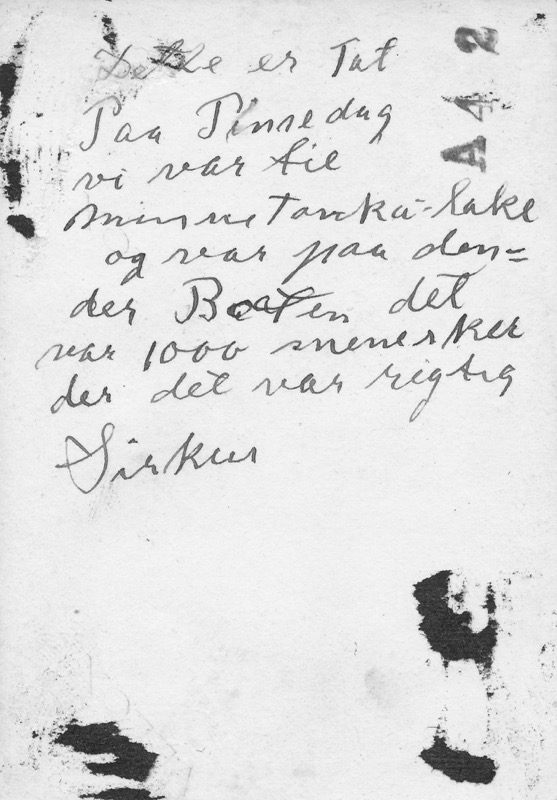 Dette er Tat
Paa Pinsedag
vi var til
minnetonka-lake
og var paa den=
der Baaten det
var 1000 menesker
der det var rigtig
Sirkus
A42